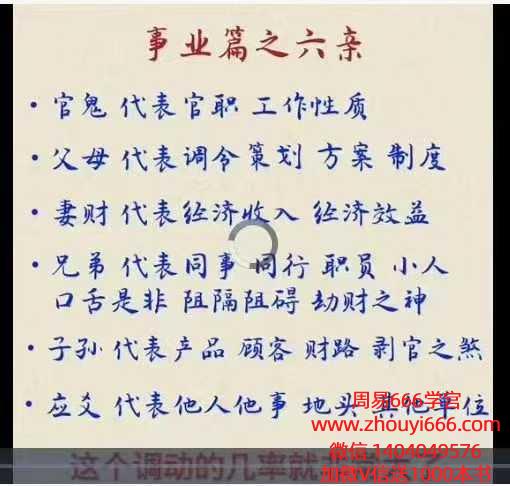 事业篇之六亲
• 官鬼 代表官职 工作性质
• 父母 代表调令策划 方案 制度
• 妻财 代表经济收入 经济效益
• 兄弟 代表同事 同行 职员 小人
口舌是非 阻隔阻碍 劫财之神
• 子孙 代表产品 顾客 财路 剥官之煞
• 应爻 代表他人他事 地头 其他单位
周易666学官
www.zhouyi666.com
微信 1404049576
加微V信送1000本书
这个调动的几率就